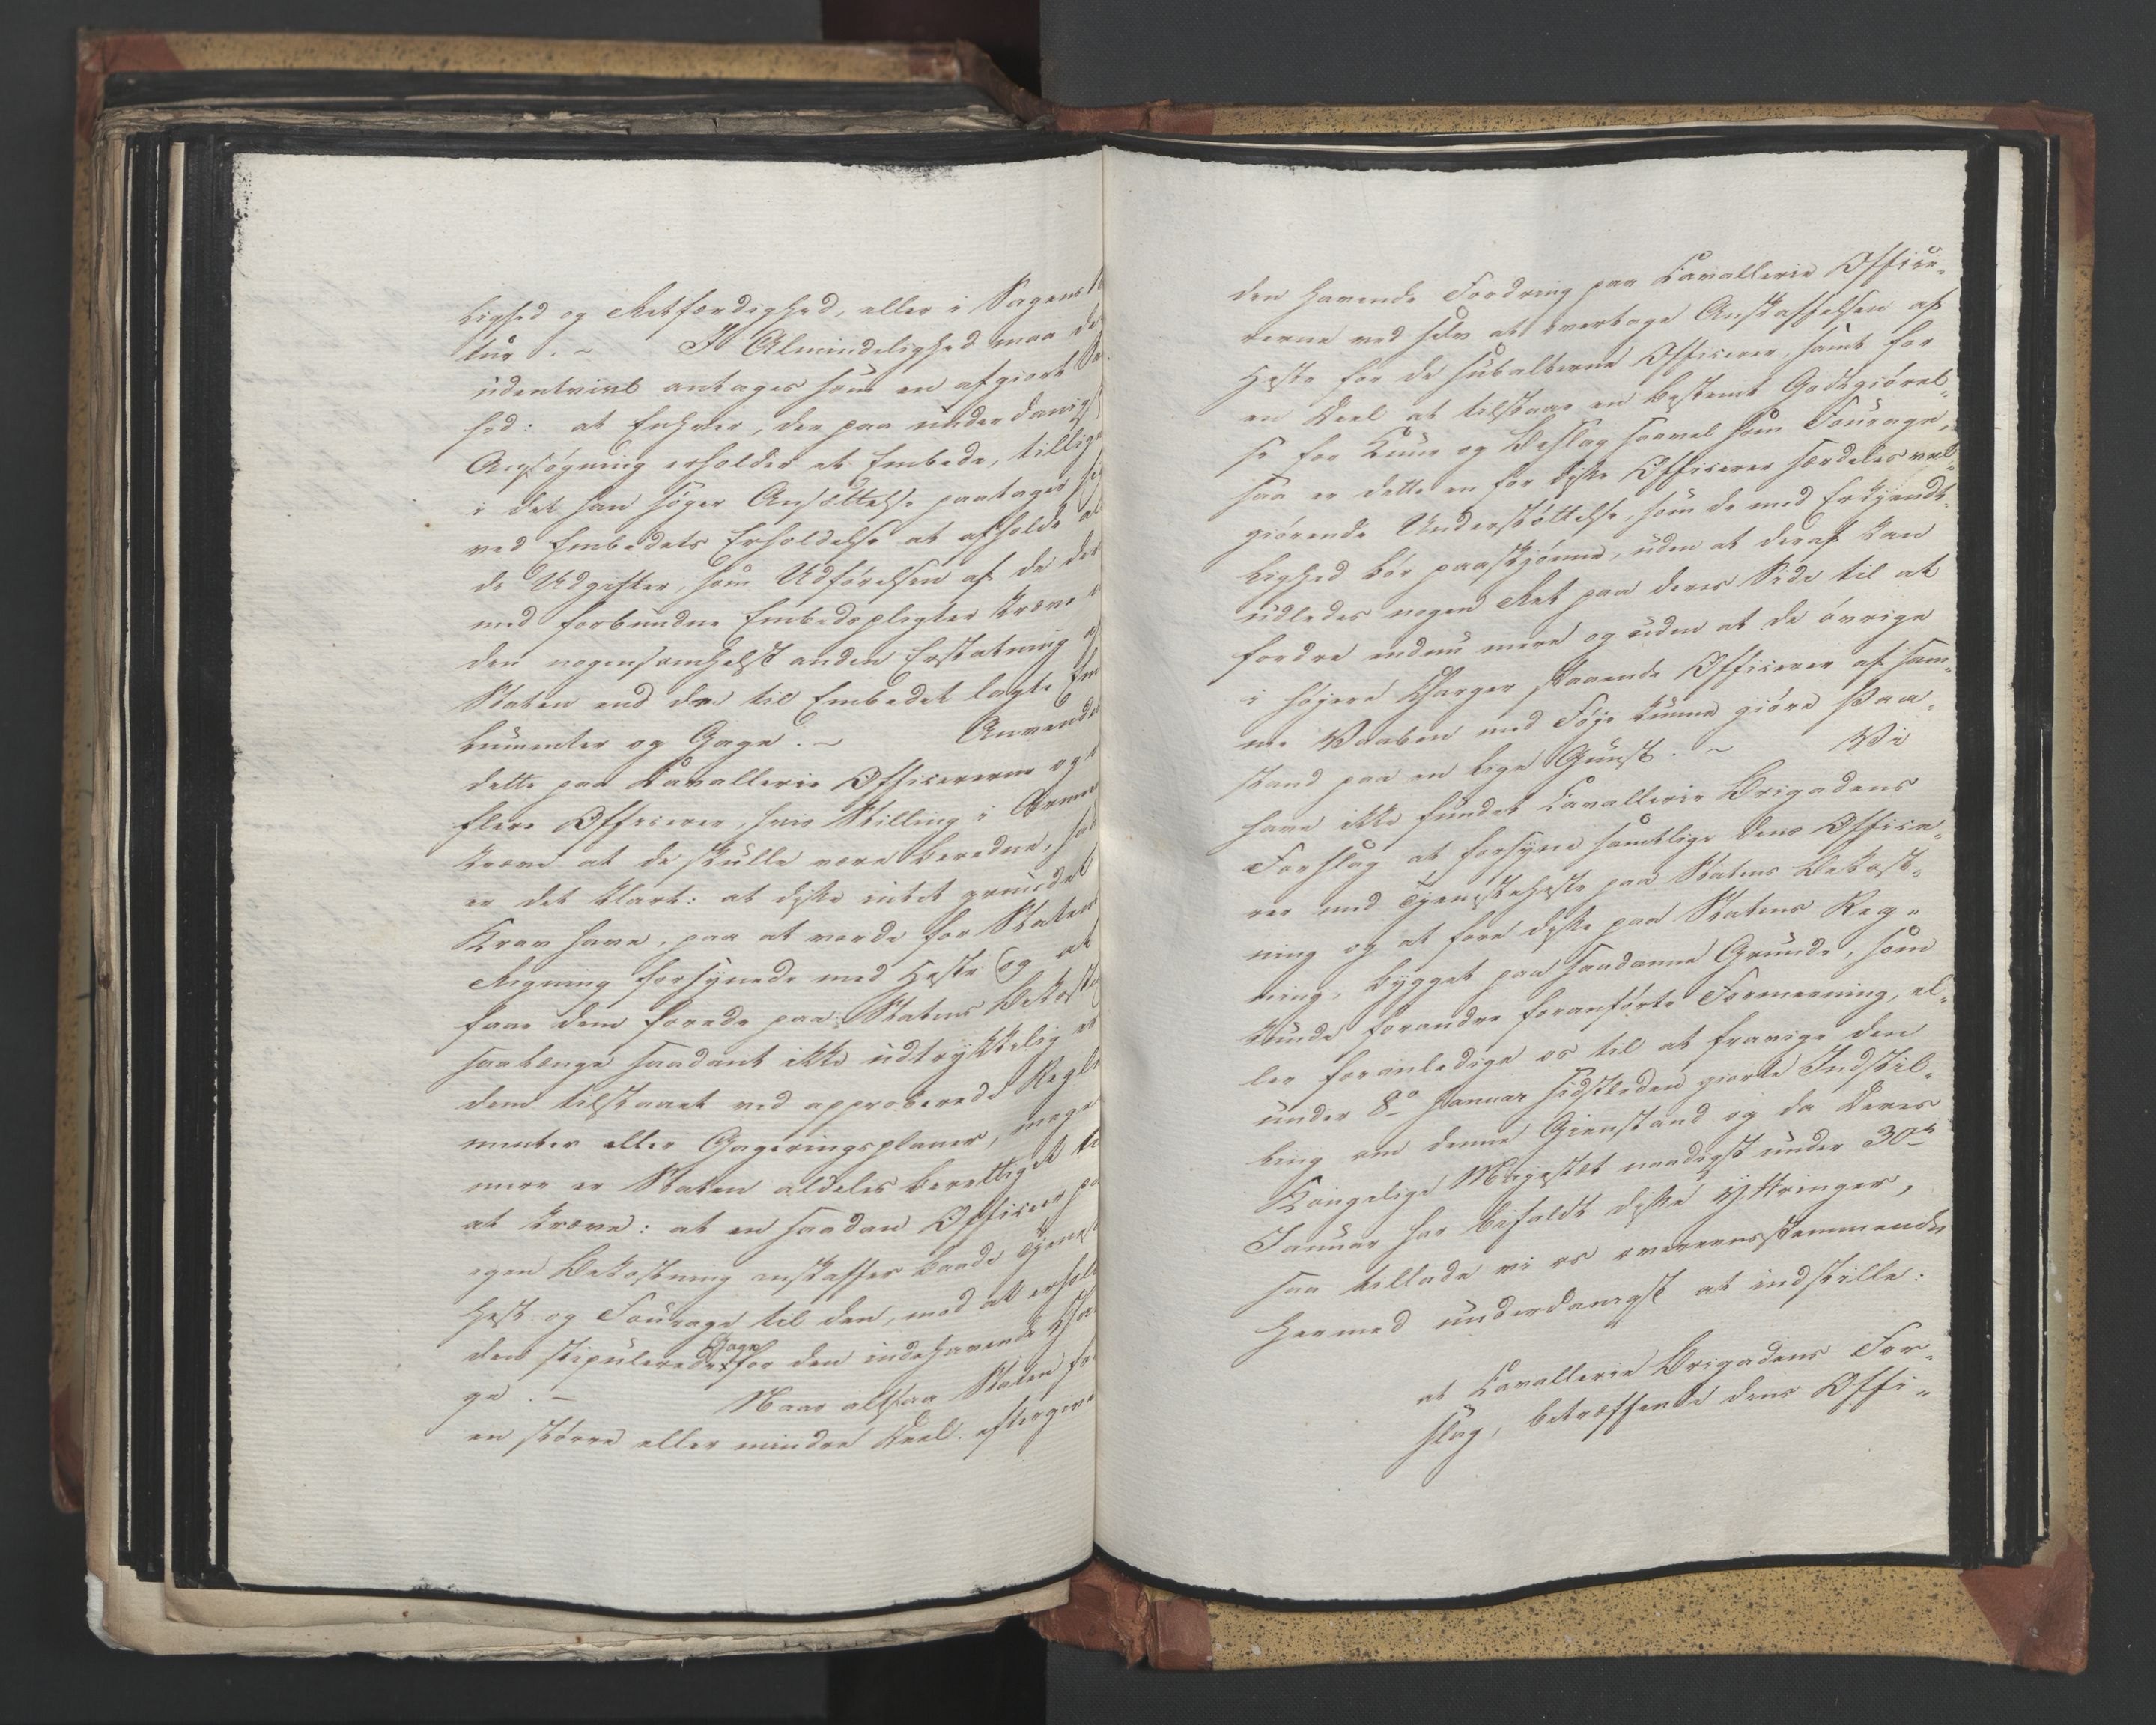 lighed og Retfærdighed, eller i Sagens
tur. – I Almindelighed maa de
udentvivl antages som en afgiort
hed: at Enhver, der paa underdanig
Ansøgning erholder et Embede, tillige
i det han søger Ansættelse paatager
ved Embedets Erholdelse at afholde al
de Udgifter, som Udførelsen af de der
med forbundne Embedspligter kræve
den nogensomhelst anden Erstatning af
Staten end de til Embedet lagte Em
lumenter og Gage. – Anvendes
dette paa Cavallerie Officererne og
flere Officerer, hvis Stilling i Armeen
kræve at de skulle være beredne, saa
er det klart: at disse intet grundet
Krav have, paa at vorde for Statens
Regning forsynede med Heste og at
faae dem forede paa Statens Bekost
saalænge saadant ikke udtrykkelig er
dem tilstaaet ved approberede Regle
menter eller Gageringsplaner, meget
mere er Staten aldeles berettiget til
at kræve: at en saadan Officeer paa
egen Bekostning anskaffer baade Tjenest
hest og Fourage til den, mod at erhold
den stipulerede Gage for den indehavende Char
ge. – Naar altsaa Staten for
en større eller mindre Deel eftergive
den havende Fordring paa Cavallerie Office-
rerne ved selv at overtage Anskaffelsen af
Heste for de subalterne Officerer, samt for
en Deel at tilstaae en bestemt Godtgiørel-
se for Cuur og Beslag saavel som Fourage,
saa er dette en for disse Officerer særdeles vel-
giørende Understøttelse, som de med Erkjendt-
lighed bør paaskjønne, uden at deraf kan
udledes nogen Ret paa deres Side til at
fordre endnu mere og uden at de øvrige
i høiere Charger staaende Officerer af sam-
me Vaaben med Føje kunne giøre Paa-
stand paa en lige Gunst. – Vi
have ikke fundet Cavallerie Brigadens
Forslag at forsyne samtlige dens Office-
rer med Tjenesteheste paa Statens Bekost-
ning og at fore disse paa Statens Reg-
ning, bygget paa saadanne Grunde, som
kunde forandre foranførte Formeening, el-
ler foranledige os til at fravige den
under 8de Januar sidstleden giorte Indstil-
ling om denne Gienstand og da Deres
Kongelige Majestæt naadigst under 30te
Januar har bifaldt disse Yttringer,
saa tillade vi os overeensstemmende
hermed underdanigst at indstille:
at Cavallerie Brigadens For-
slag, betræffende dens Offi-